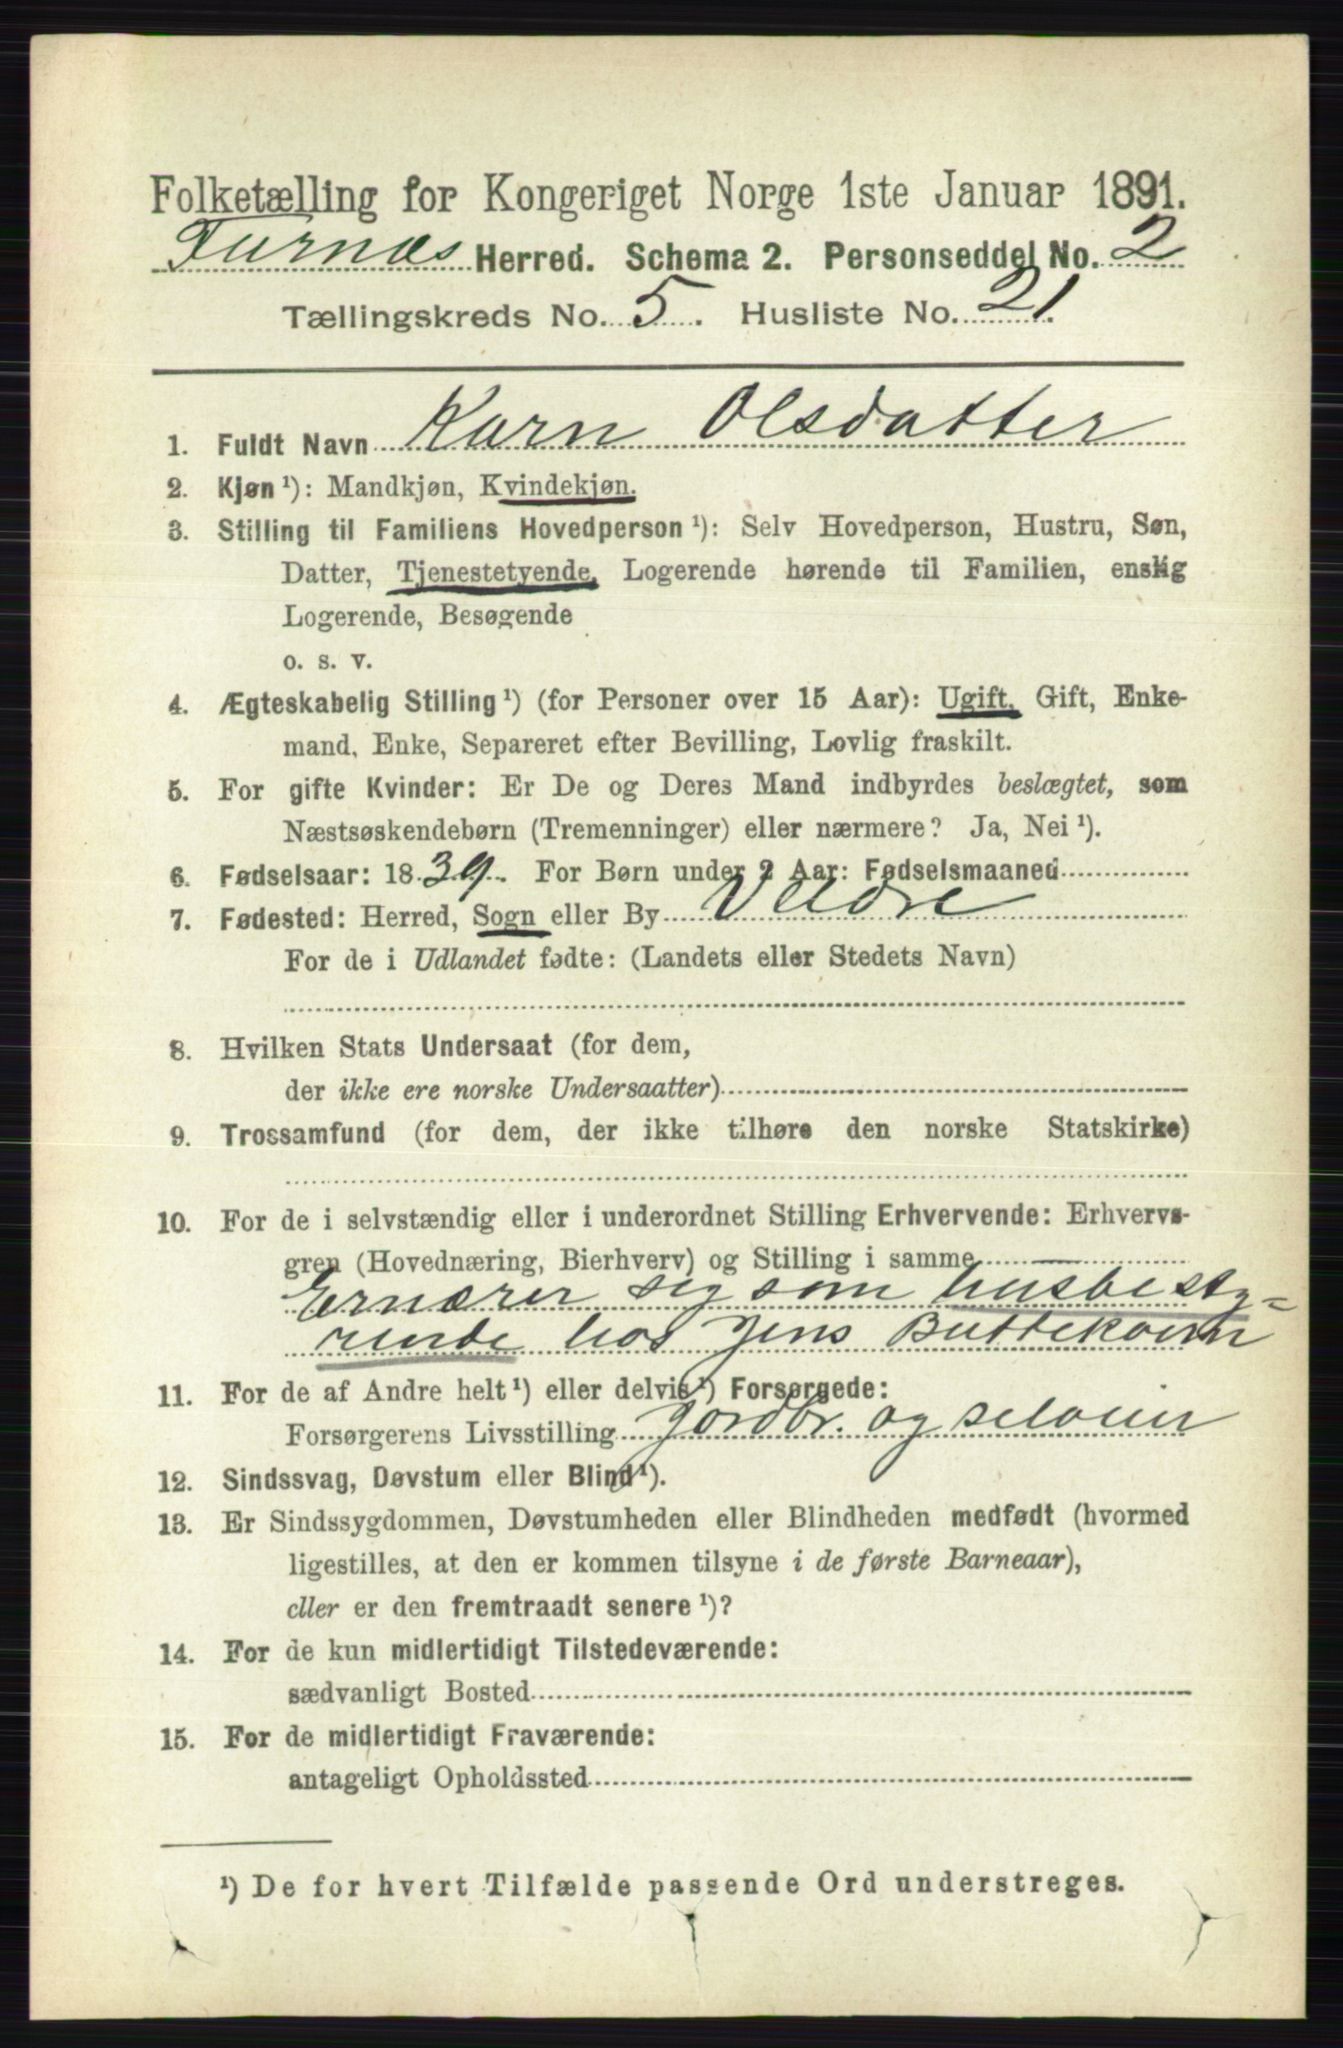 Folketælling for Kongeriget Norge 1ste Januar 1891.
Furnæs Herred. Schema 2. Personseddel No. 2
Tællingskreds No. 5. Husliste No. 21.
1. Fuldt Navn Karn Olsdatter
2. Kjøn ¹): Mandkjøn, Kvindekjøn.
3. Stilling til Familiens Hovedperson ¹): Selv Hovedperson, Hustru, Søn,
Datter, Tjenestetyende, Logerende hørende til Familien, enslig
Logerende, Besøgende
o. s. v.
4. Ægteskabelig Stilling ¹) (for Personer over 15 Aar): Ugift, Gift, Enke-
mand, Enke, Separeret efter Bevilling, Lovlig fraskilt.
5. For gifte Kvinder: Er De og Deres Mand indbyrdes beslægtet, som
Næstsøskendebørn (Tremenninger) eller nærmere? Ja, Nei ¹).
6. Fødselsaar: 1839. For Børn under 2 Aar: Fødselsmaaned
7. Fødested: Herred, Sogn eller By Veldre
For de i Udlandet fødte: (Landets eller Stedets Navn)
8. Hvilken Stats Undersaat (for dem,
der ikke ere norske Undersaatter)
9. Trossamfund (for dem, der ikke tilhøre den norske Statskirke)
10. For de i selvstændig eller i underordnet Stilling Erhvervende: Erhvervs-
gren (Hovednæring, Bierhverv) og Stilling i samme
Ernærer sig som husbesty-
rende hos Jens Buttekvern
11. For de af Andre helt ¹) eller delvis ¹) Forsørgede:
Forsørgerens Livsstilling Jordbr. og seloier
12. Sindssvag, Døvstum eller Blind ¹).
13. Er Sindssygdommen, Døvstumheden eller Blindheden medfødt (hvormed
ligestilles, at den er kommen tilsyne i de første Barneaar),
eller er den fremtraadt senere ¹)?
14. For de kun midlertidigt Tilstedeværende:
sædvanligt Bosted
15. For de midlertidigt Fraværende:
antageligt Opholdssted
¹) De for hvert Tilfælde passende Ord understreges.